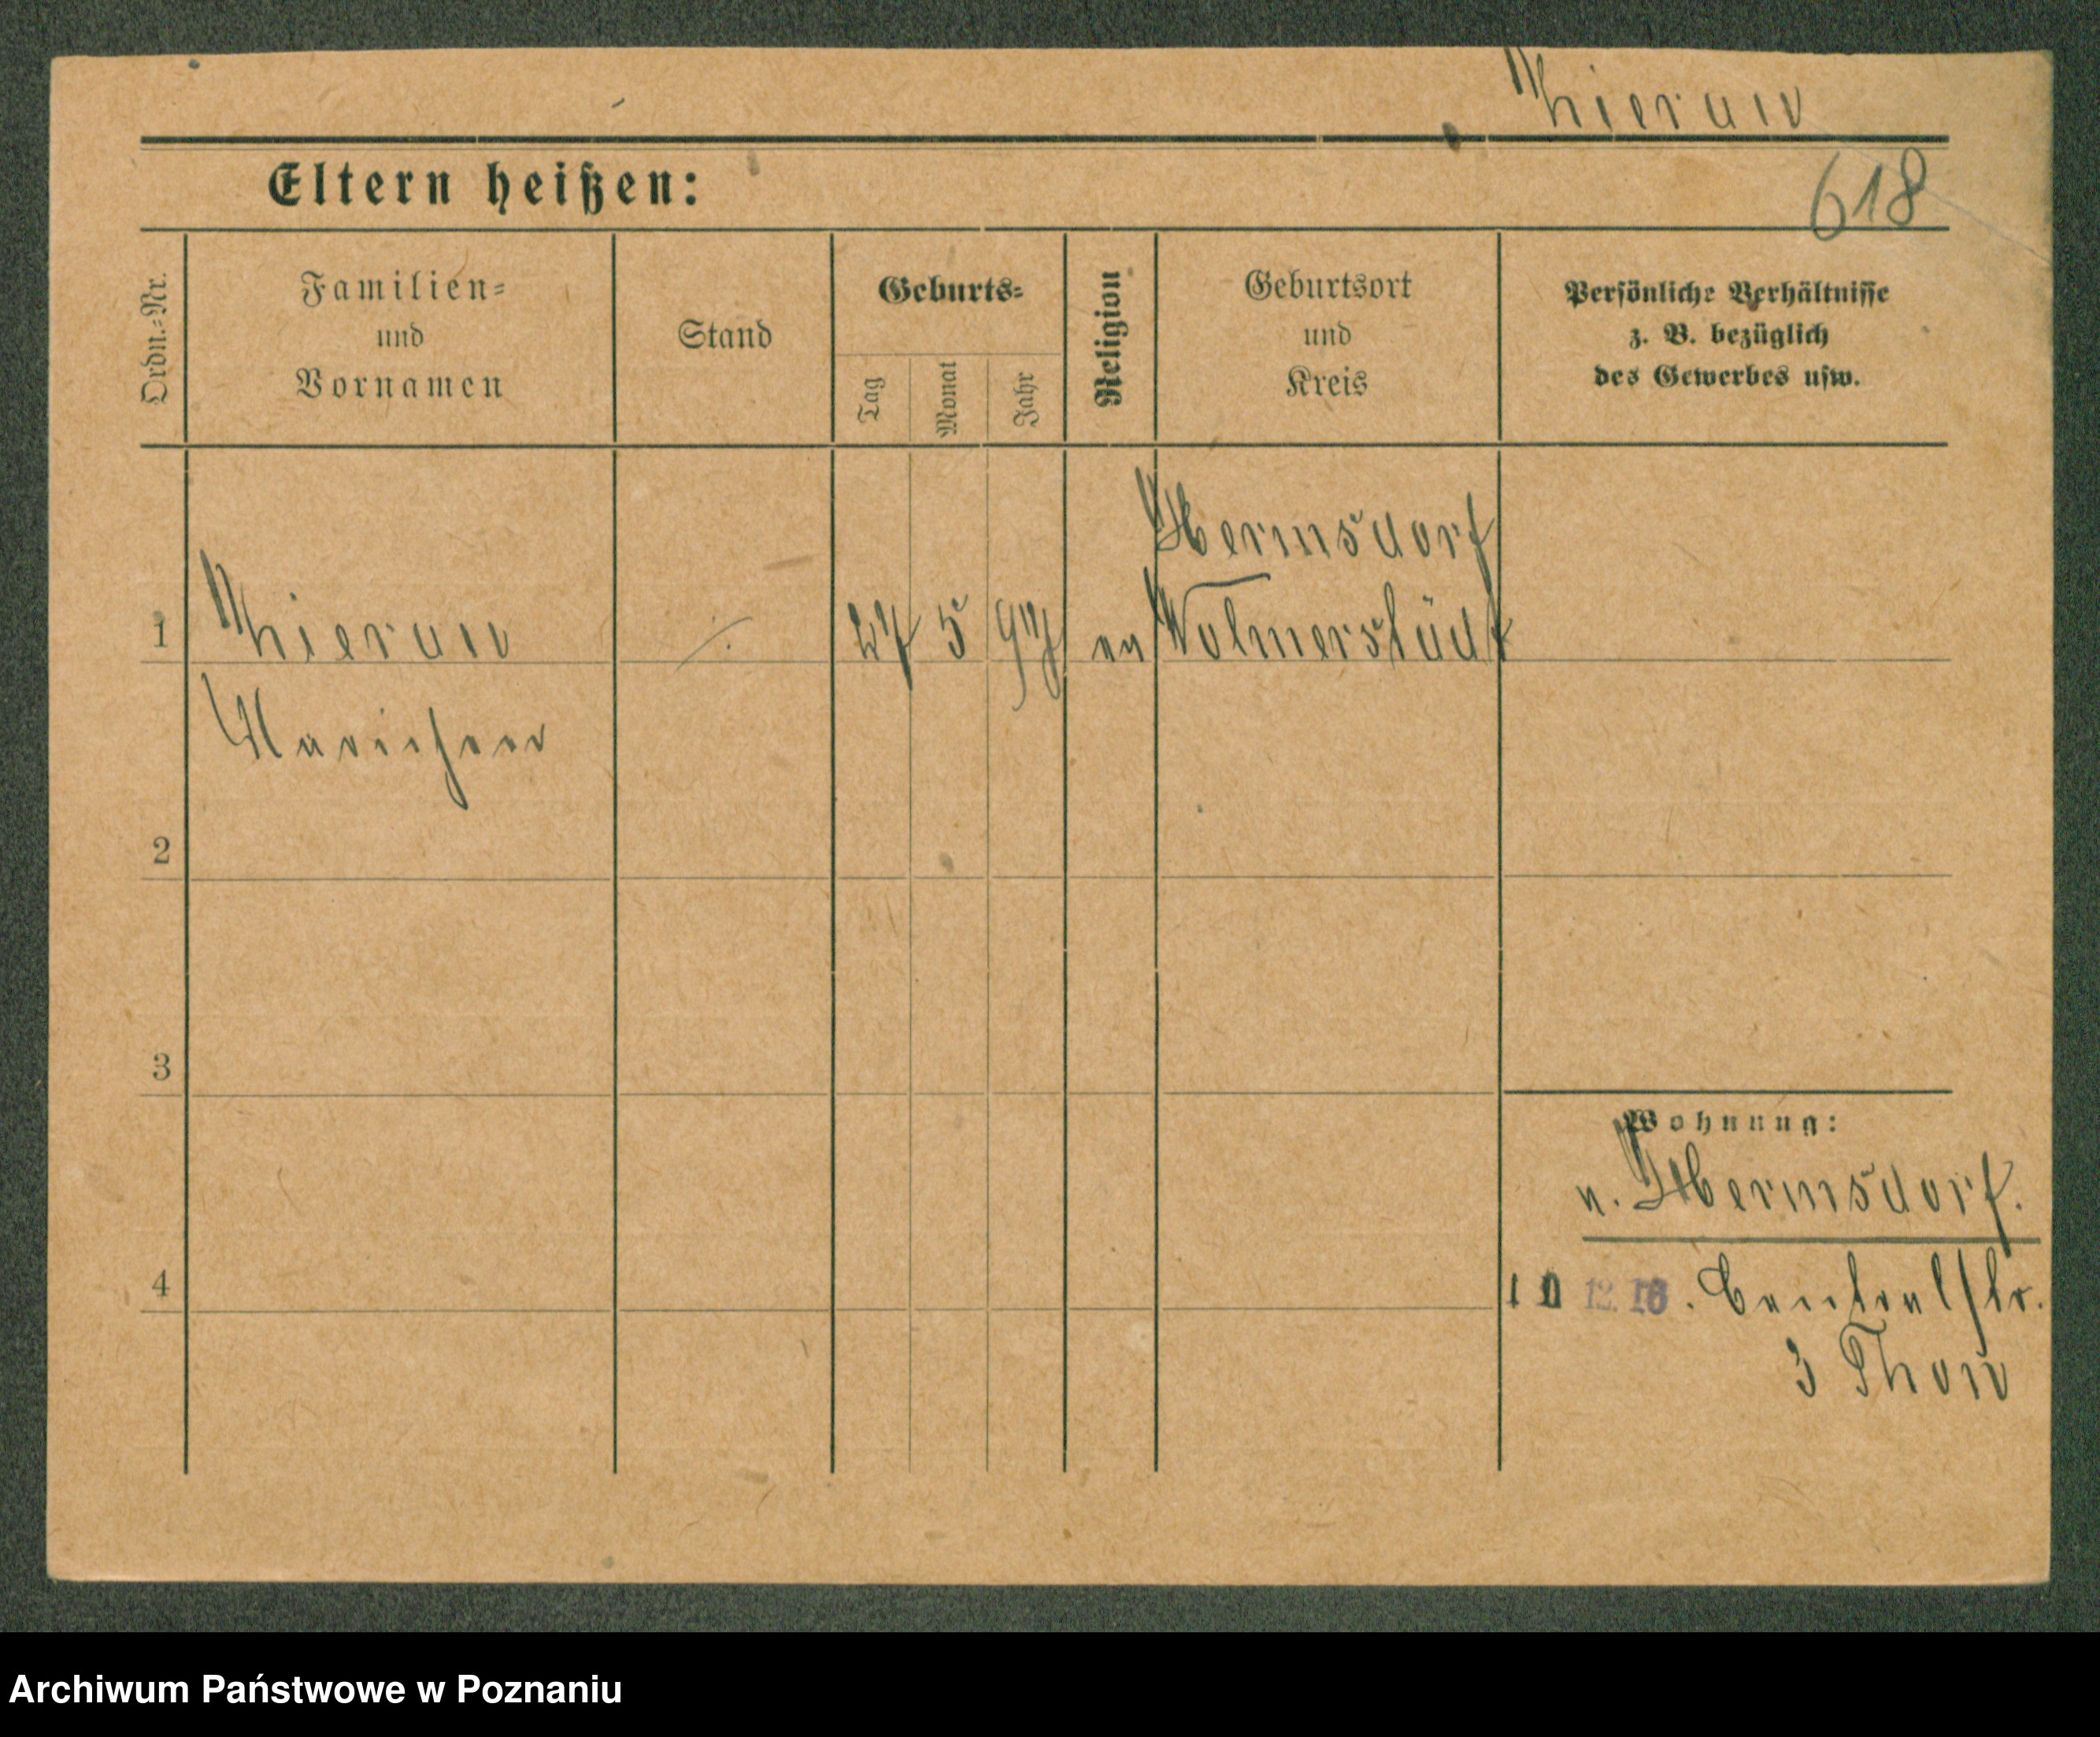 Thierau
Eltern heißen:
618
Ordn.-Nr.
Familien-
und
Vornamen
Stand
Geburts-
Tag
Monat
Jahr
Religion
Geburtsort
und
Kreis
Persönliche Verhältnisse
z. B. bezüglich
des Gewerbes usw.
Hermsdorf
1 Thierau ./. 27 5 97 ev Wolmerstädt
2
3
Wohnung:
n. Hermsdorf.
4
10 12. 16. Centralstr.
3 Thorn
Archiwum Państwowe w Poznaniu